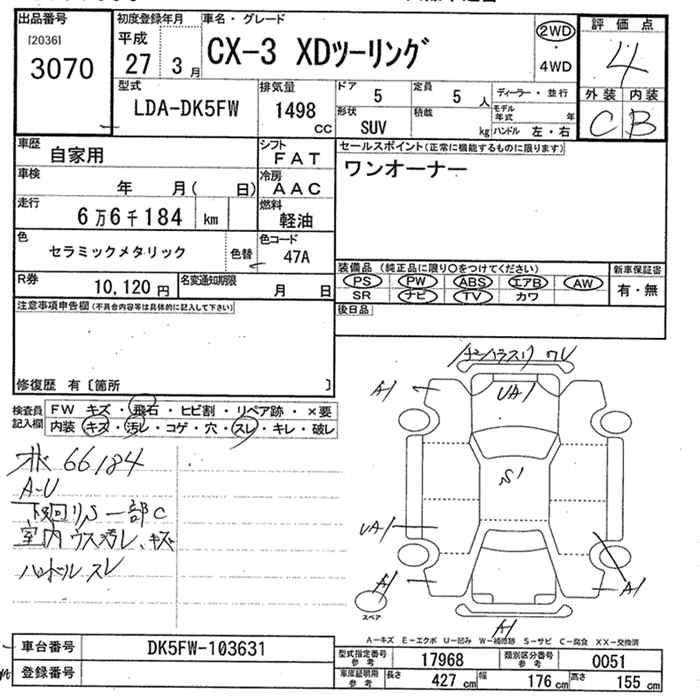 出品番号 初度登録年月 車名・グレード 評価点
[2036] 平成 CX-3 XDツーリング 2WD 4
3070 27 3月 ・4WD 外装 内装
型式 排気量 ドア 5 定員 5人 ディーラー・並行 C B
LDA-DK5FW 1498 CC 形状 SUV 積載 kg モデル年式 年
ハンドル 左・右
車歴 自家用 シフト FAT セールスポイント(正常に機能するものに限ります)
車検 年 月( 日) 冷房 AAC ワンオーナー
走行 6万6千184 km 燃料 軽油
色 セラミックメタリック 色替 色コード 47A
R券 10,120円 名変通知期限 月 日 装備品(純正品に限り○をつけてください) 新車保証書
PS PW ABS エアB AW 有・無
SR ナビ TV カワ
注意事項申告欄(不具合内容等は具体的に記入して下さい) 後日品
修復歴 有〔箇所 〕
検査員記入欄 FW キズ・飛石・ヒビ割・リペア跡・×要
内装 キズ・汚レ・コゲ・穴・スレ・キレ・破レ
66184
A-U
下回りS一部C
室内ウス汚レ、キズ
ハンドルスレ
A1
UA1
A1
S1
UA1
A1
A1
A1
スペア
A-キズ E-エクボ U-凹み W-補修跡 S-サビ C-腐食 XX-交換済
車台番号 DK5FW-103631
登録番号
型式指定番号 参考 17968 類別区分番号 参考 0051
車庫証明用 参考 長さ 427cm 幅 176cm 高さ 155cm